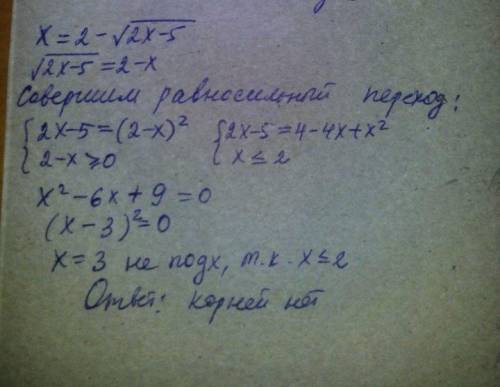 x = 2 - √(2x-5)
√(2x-5) = 2-x
Совершим равносильный переход:
{2x-5=(2-x)² {2x-5=4-4x+x²
{2-x≥0 {x≤2
x²-6x+9=0
(x-3)²=0
x=3 не подх, т.к. x≤2
Ответ: корней нет